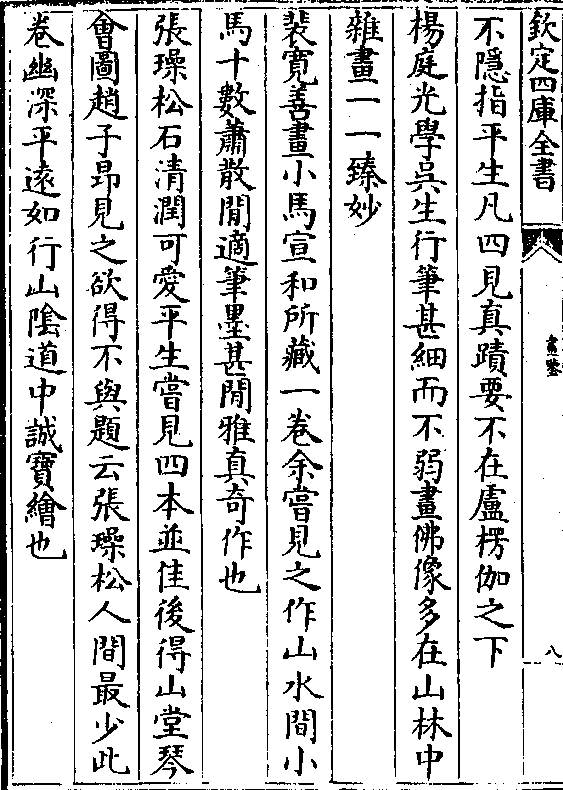 欽定四庫全書
畫鑒
八
不隱指平生凡四見真蹟要不在盧楞伽之下
楊庭光學吳生行筆甚細而不弱畫佛像多在山林中
雜畫一一臻妙
裴寛善畫小馬宣和所藏一卷余嘗見之作山水間小
馬十數蕭散閒適筆墨甚閒雅真奇作也
張璪松石清潤可愛平生嘗見四本並佳後得山堂琴
會圖趙子昻見之欲得不與題云張璪松人間最少此
卷幽深平遠如行山隂道中誠寶繪也